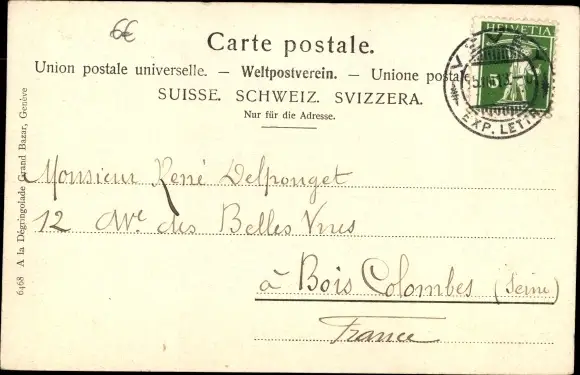 6€
Carte postale.
HELVETIA
5
EXP. LETTR
Union postale universelle. — Weltpostverein. — Unione postale
SUISSE. SCHWEIZ. SVIZZERA.
Nur für die Adresse.
Monsieur René Delponget
12 Ave des Belles Vues
à Bois Colombes (Seine)
France
6468 A la Dégringolade Grand Bazar, Genève